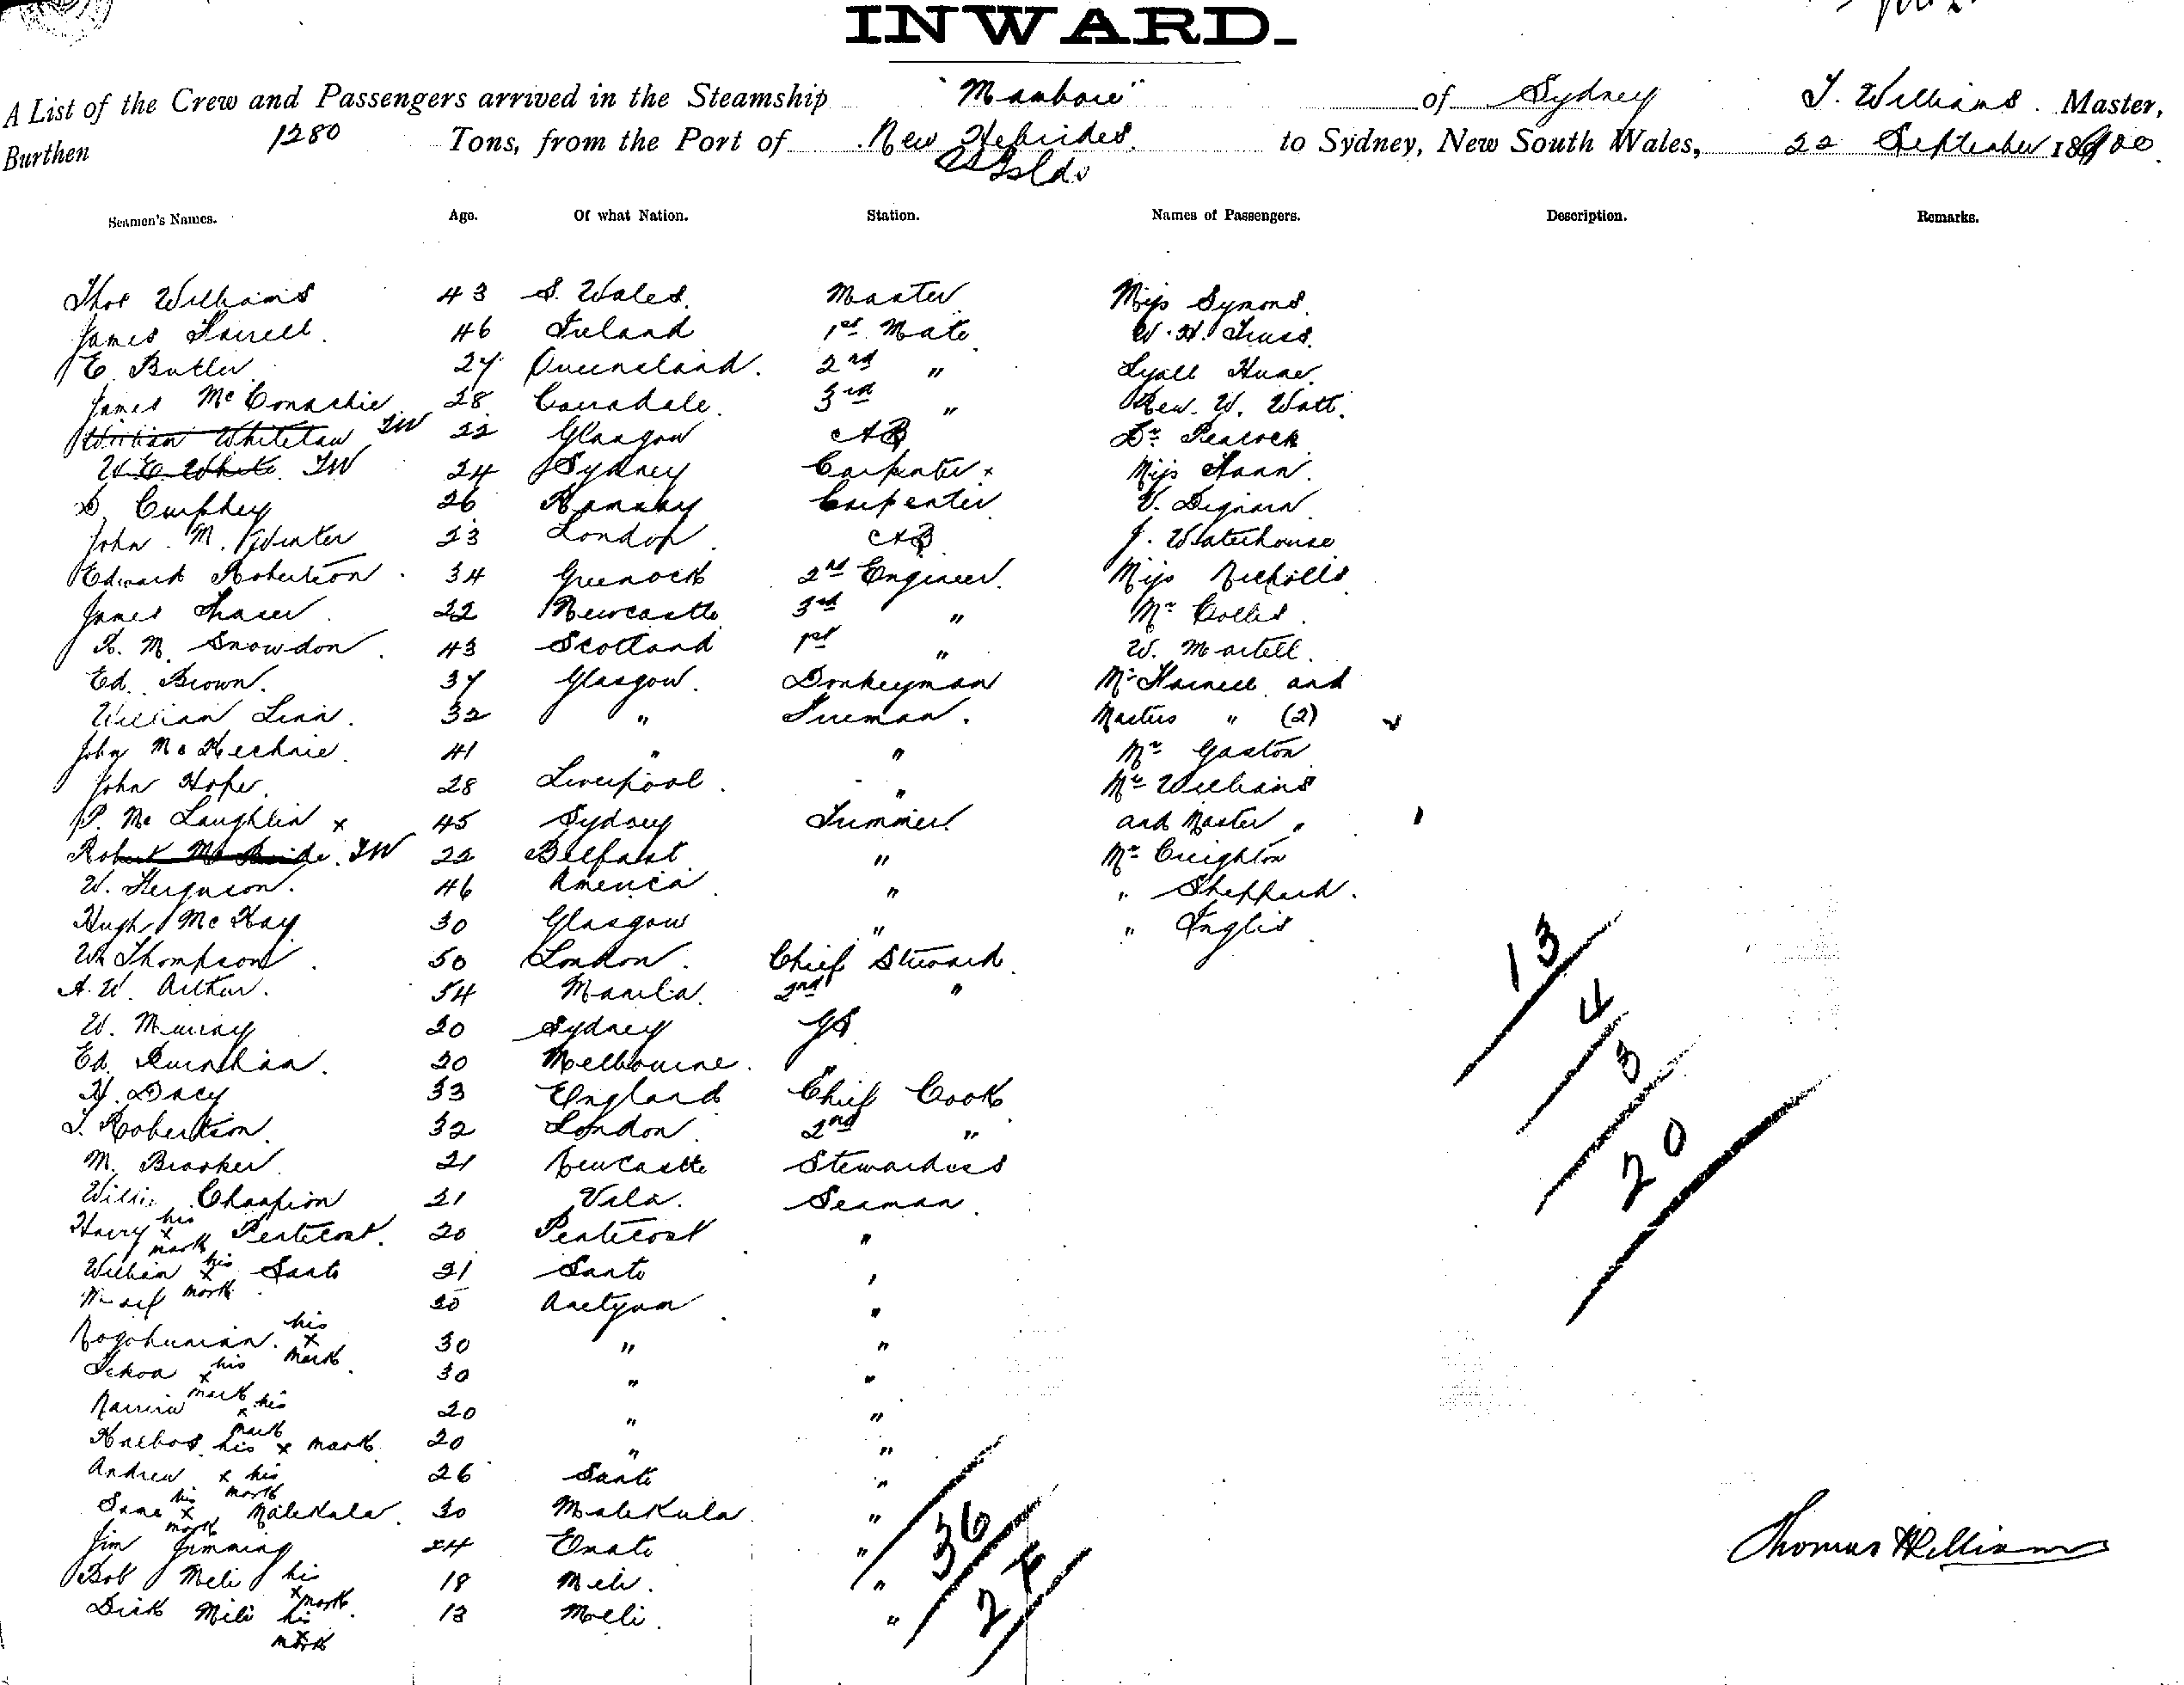 INWARD.
A List of the Crew and Passengers arrived in the Steamship "Mambare" of Sydney T. Williams. Master,
Burthen 1280 Tons, from the Port of New Hebrides. to Sydney, New South Wales, 22 September 1900
& Islds
Seamen's Names. Age. Of what Nation. Station. Names of Passengers. Description. Remarks.
Thos Williams 43 S. Wales. Master Miss Symons.
James Farrell. 46 Ireland 1st Mate W. H. Truss.
E. Butler 27 Queensland. 2nd " Lyall Hume.
James McConachie 28 3rd " Rev. W. Watt.
William Whitelaw TW 22 Glasgow AB Dr Peacock
W. E. White. TW 24 Sydney Carpenter x Miss
D. Curphey 26 Ramsay Carpenter V. Dignam
John. M. Winter 23 London. AB J. Waterhouse
Edward Robertson. 34 Greenock 2nd Engineer. Miss Nicholls
James Fraser 22 Newcastle 3rd " Mr Colles.
R. M. Snowdon. 43 Scotland 1st " W. Martell.
Ed. Brown. 37 Glasgow. Donkeyman and
William Linn. 32 " Fireman. Masters " (2)
John McKechnie. 41 " " Mr Gaston
John Hope. 28 Liverpool. " Williams
P. McLaughlin x 45 Sydney Trimmer. and Master "
Robert McBride. TW 22 Belfast " Mr Creighton
W. Ferguson. 46 America " " Sheppard.
Hugh McKay 30 Glasgow " " Inglis
Wm Thompson. 50 London. Chief Steward.
A. W. Arthur. 54 Manila. 2nd "
W. Murray 20 Sydney GS.
Ed. 20 Melbourne. "
H. Dacy 33 England Chief Cook
T. Robertson. 32 London. 2nd "
M. Brooker 21 Newcastle Stewardess
Willie Champion 21 Vila. Seaman.
Harry his x mark Pentecost. 20 Pentecost "
William his x mark Santo 21 Santo "
20 Anetyum. "
his x mark. 30 " "
his x mark 30 " "
his x mark 20 " "
his x mark. 20 " "
Andrew x his mark 26 Santo "
his x mark Malekula. 30 Malekula. "
Jim Jimming 24 "
Bob Meli his x mark. 18 Meli. "
Dick Mili his x mark 18 Meli. "
13
4
3
20
36
2
Thomas Williams